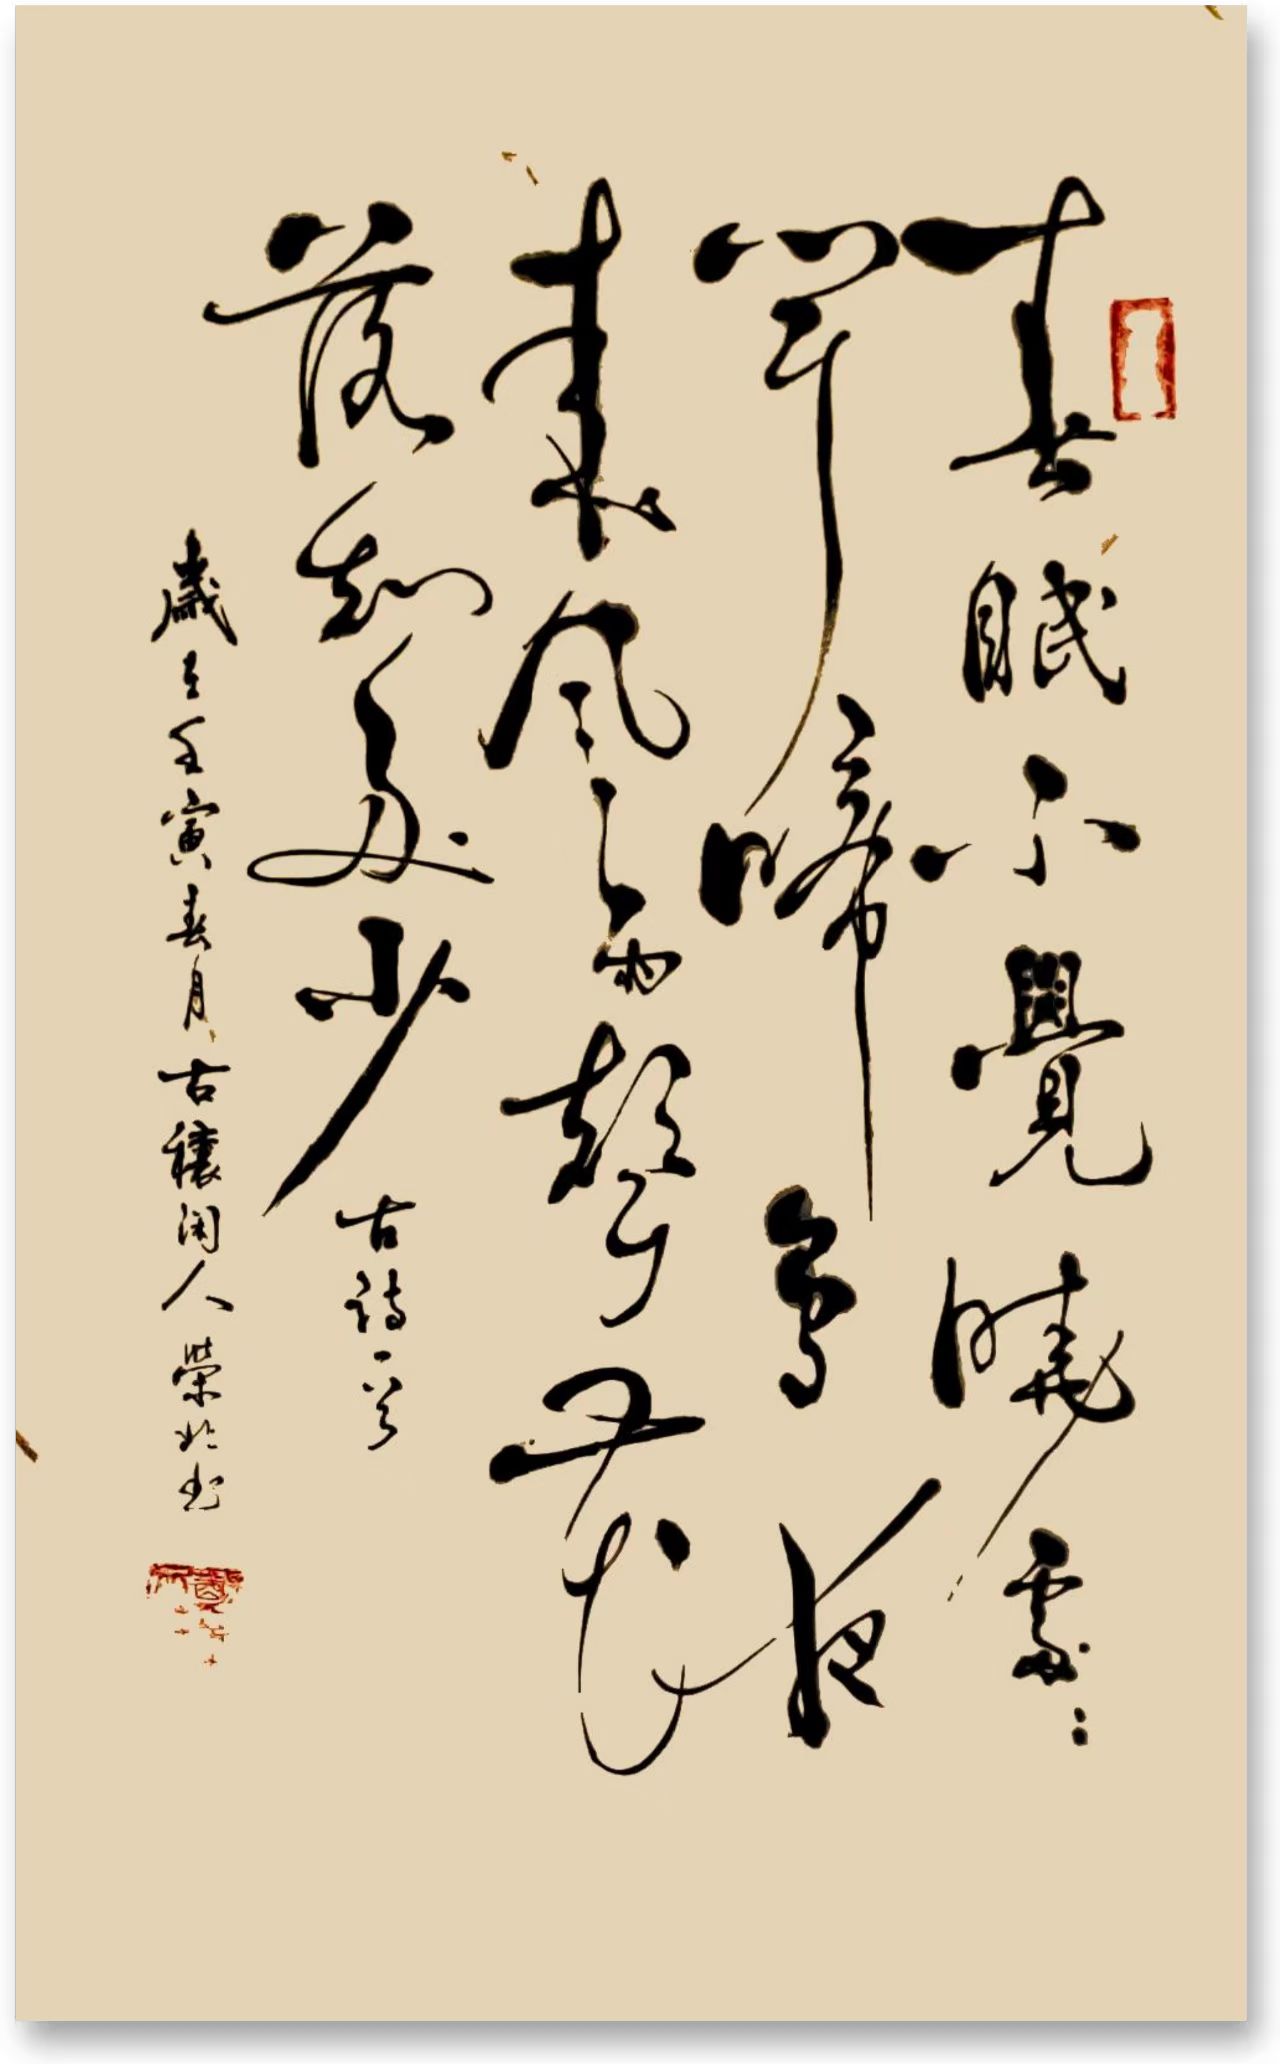 春眠不覺曉處:
聞啼鳥夜
來風雨聲花
落知多少
古詩一首
歲在壬寅春月古穰閑人榮於書